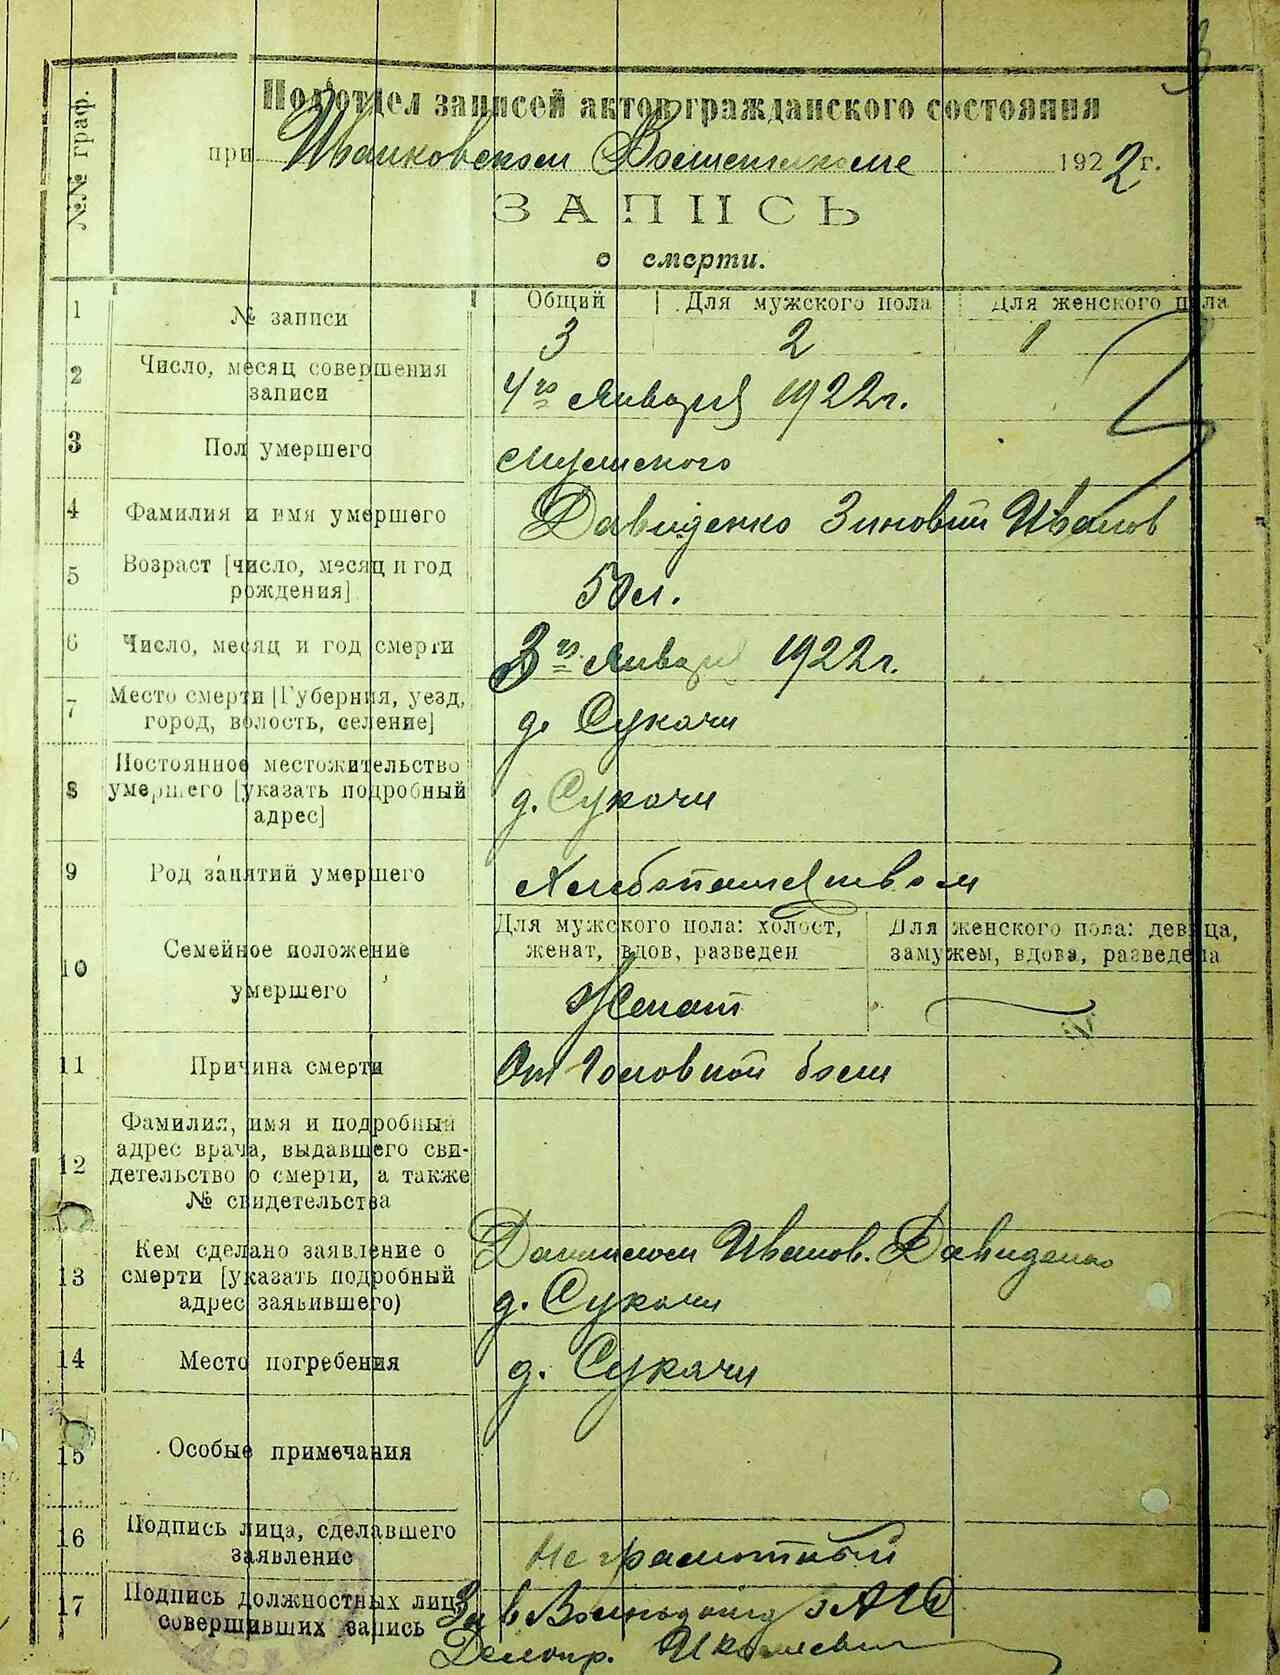 3
№№ граф.
Подотдел записей актов гражданского состояния
при Иванковском Волисполкоме 1922 г.
ЗАПИСЬ
о смерти.
1 № записи Общий Для мужского пола Для женского пола
3 2 1
2 Число, месяц совершения
записи
4го Января 1922г.
3 Пол умершего мужского
4 Фамилия и имя умершего Давиденко Зиновий Иванов
5 Возраст [число, месяц и год
рождения]
50л.
6 Число, месяц и год смерти 3го Января 1922г.
7 Место смерти [Губерния, уезд,
город, волость, селение]
д. Сукачи
8 Постоянное местожительство
умершего [указать подробный
адрес]
д. Сукачи
9 Род занятий умершего Хлебопашеством
10 Семейное положение
умершего
Для мужского пола: холост,
женат, вдов, разведен
Для женского пола: девица,
замужем, вдова, разведена
Женат
11 Причина смерти От Головной боли
12 Фамилия, имя и подробный
адрес врача, выдавшего сви-
детельство о смерти, а также
№ свидетельства
13 Кем сделано заявление о
смерти [указать подробный
адрес заявившего)
Даниилом Иванов. Давиденко
д. Сукачи
14 Место погребения д. Сукачи
15 Особые примечания
16 Подпись лица, сделавшего
заявление
Неграмотный
17 Подпись должностных лиц,
совершивших запись
Зав
Делопр.